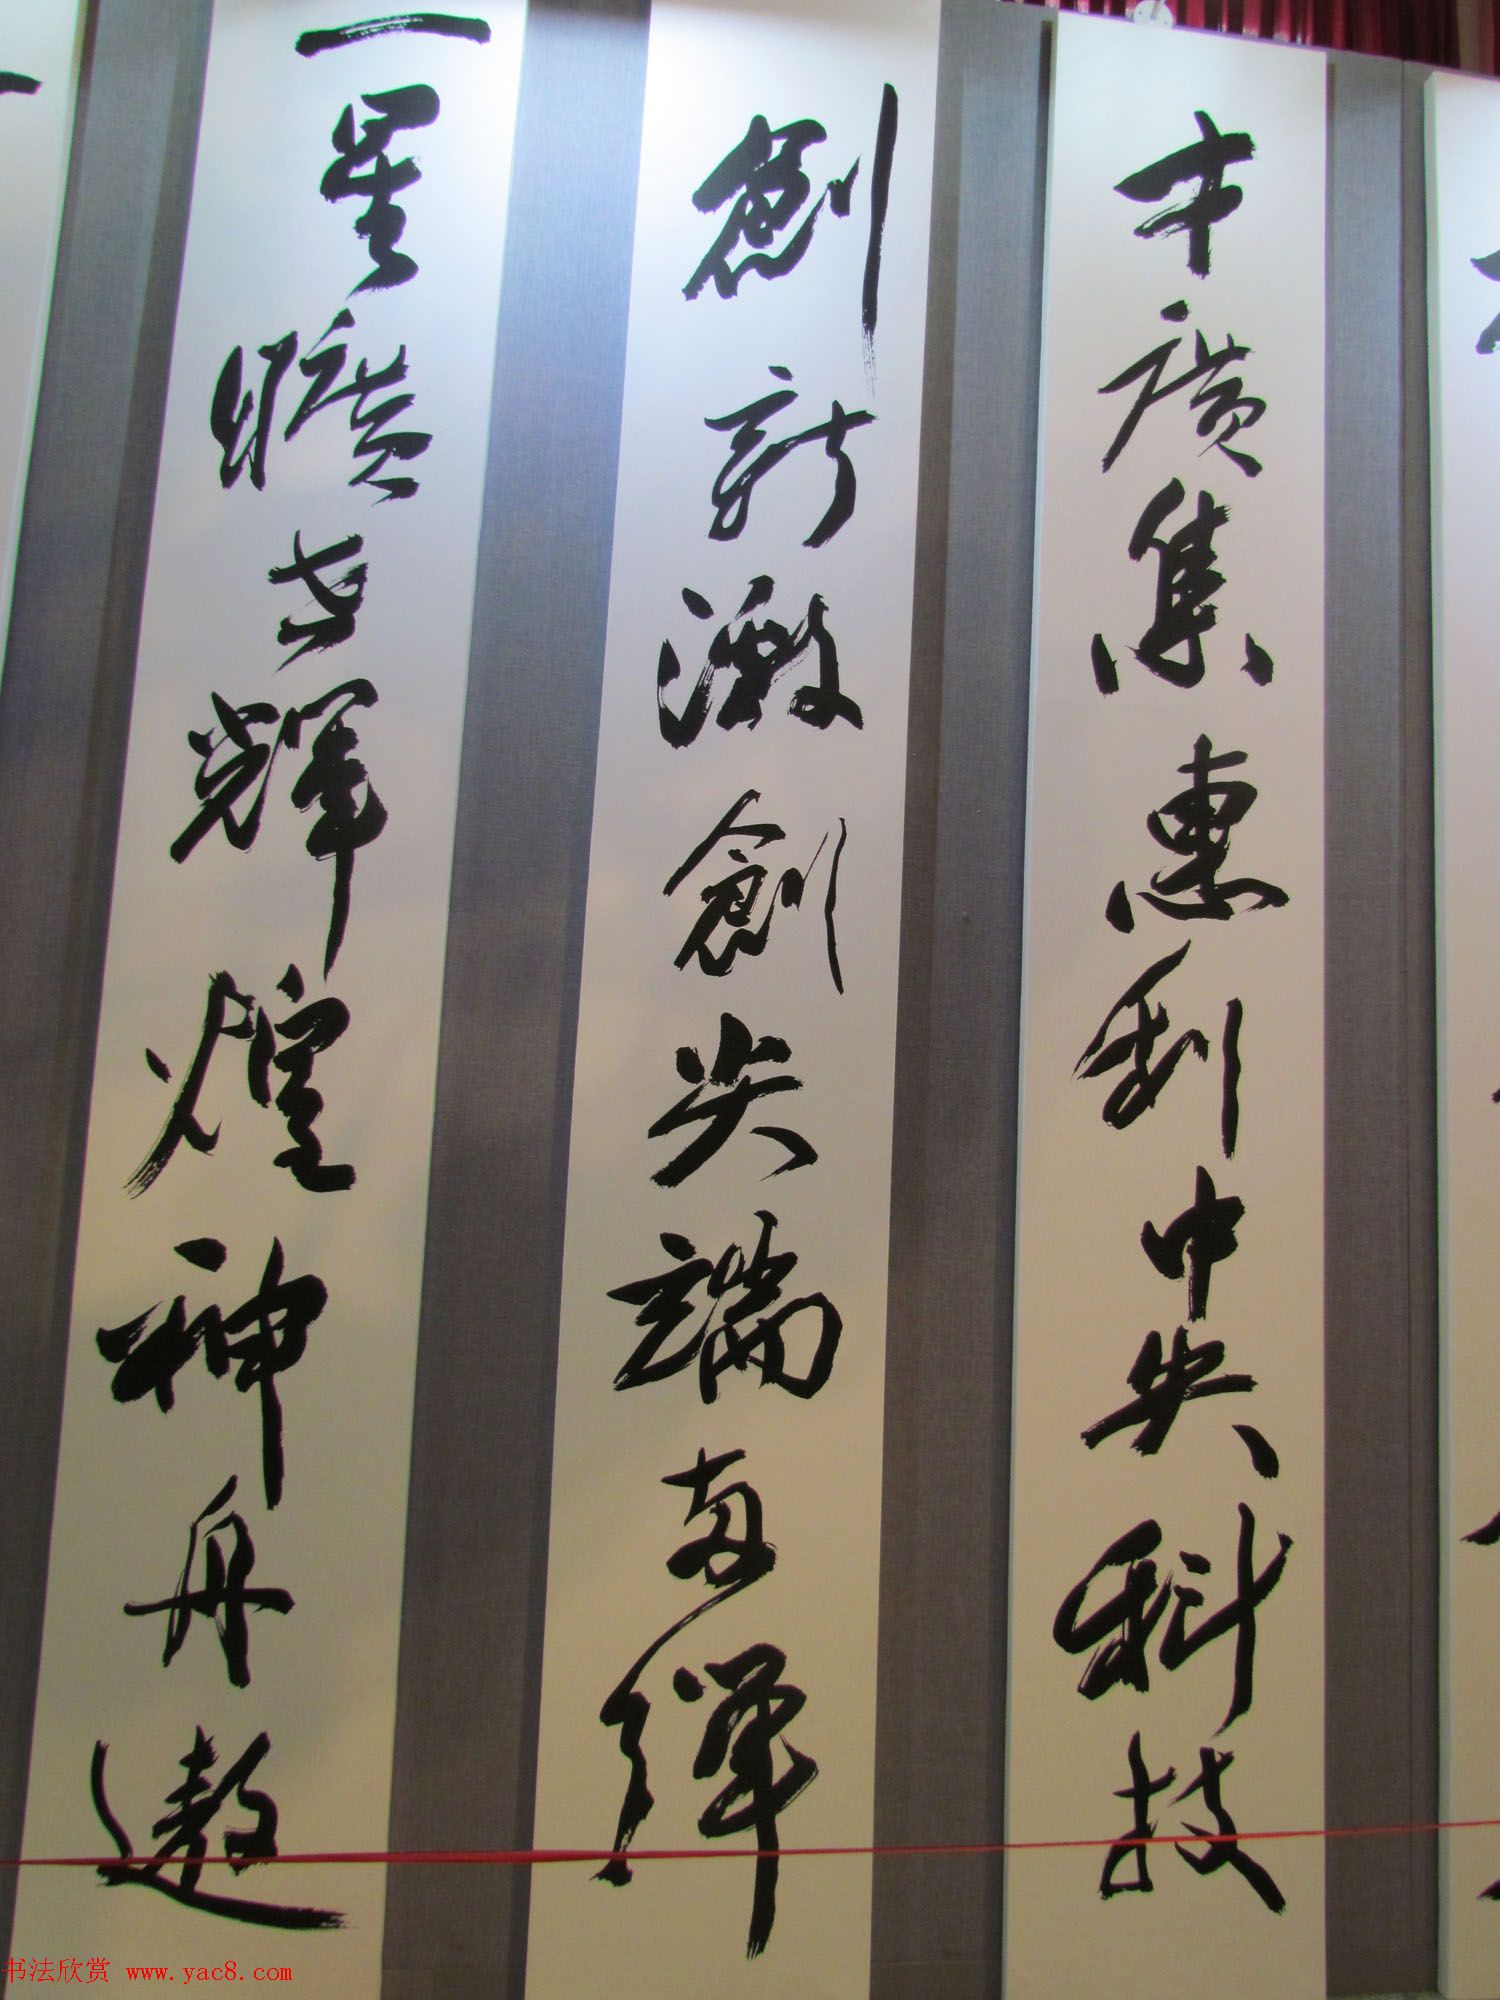 才廣集惠利中央科技
創新激創尖端兩彈
一星曠世輝煌神舟遨
书法欣赏 www.yac8.com